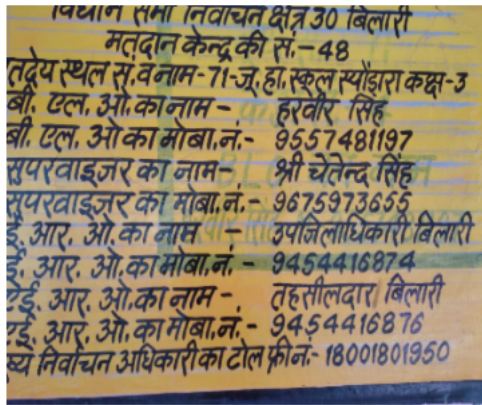 विधान सभा निर्वाचन क्षेत्र 30 बिलारी
मतदान केन्द्र की सं.-48
तदेय स्थल सं. व नाम-71-जू. हा. स्कूल स्योंडारा कक्ष-3
बी. एल. ओ. का नाम - हरवीर सिंह
बी. एल. ओ. का मोबा. नं.- 9557481197
सुपरवाइजर का नाम- श्री चेतेन्द्र सिंह
सुपरवाइजर का मोबा. नं.- 9675973655
ई. आर. ओ. का नाम - उपजिलाधिकारी बिलारी
ई. आर. ओ. का मोबा. नं. - 9454416874
ऐई. आर. ओ. का नाम - तहसीलदार बिलारी
ऐई. आर. ओ. का मोबा. नं.- 9454416876
ख्य निर्वाचन अधिकारी का टोल फ्री नं.- 18001801950